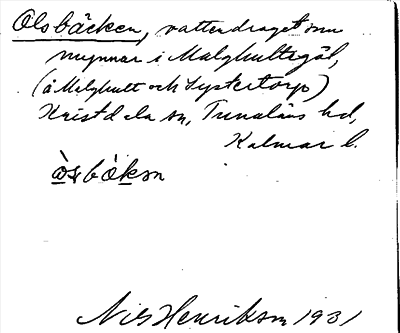 Olsbäcken, vattendraget som
mynnar i Malghultsgöl,
(å Malghult och Systertorp)
Kristdala sn, Tunaläns hd,
Kalmar l.
Nils Henrikson 1931